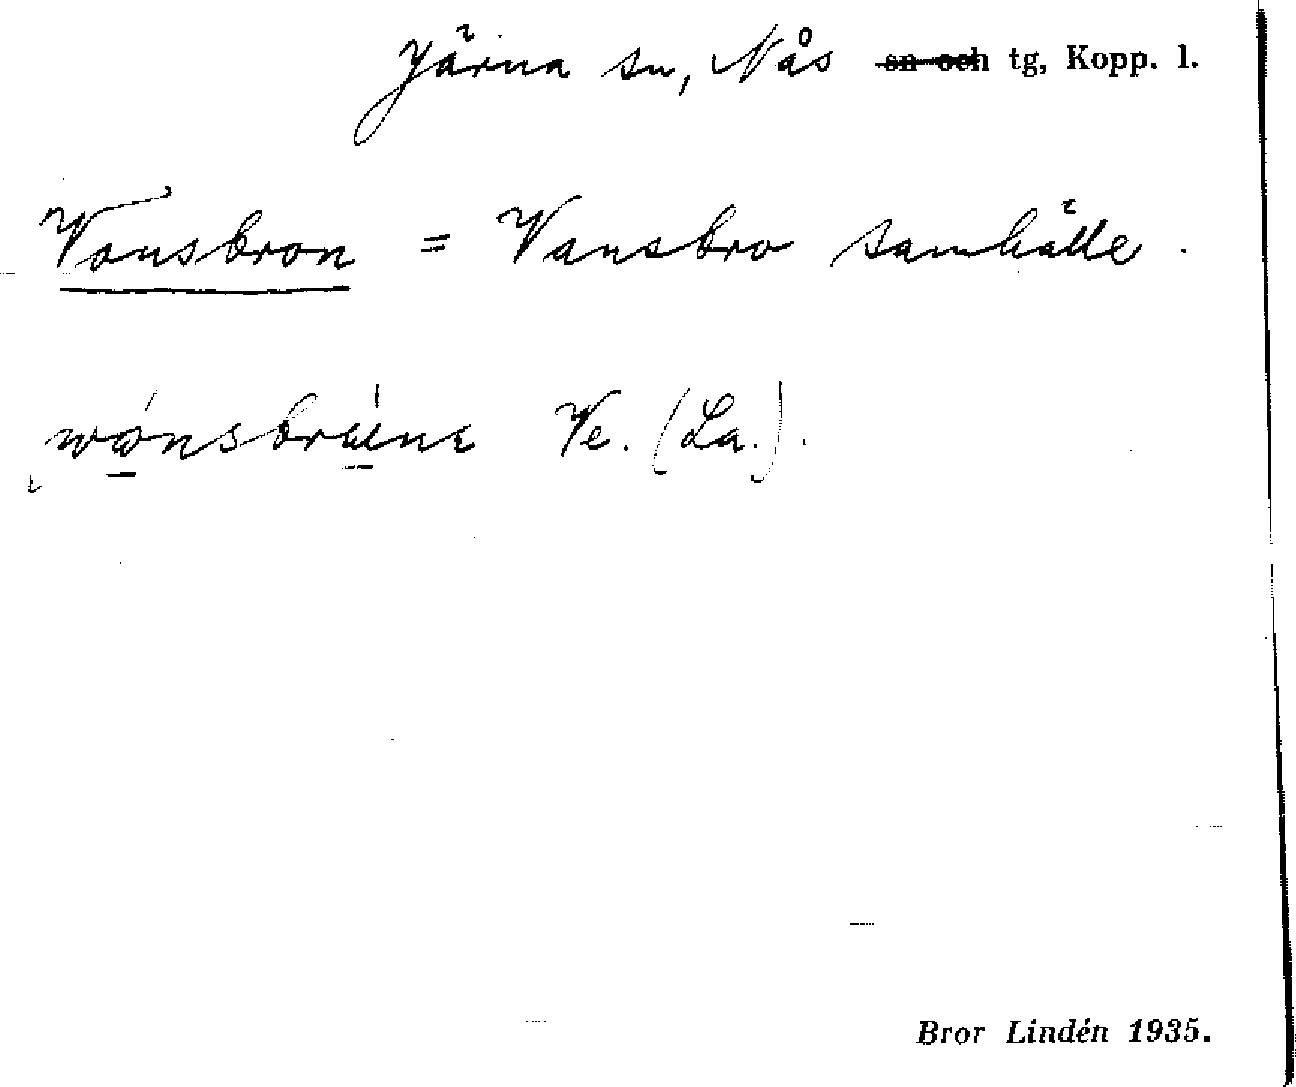 Järna sn, Nås ~~sn och~~ tg, Kopp. l.
Vansbron = Vansbro samhälle.
Ve. (La.).
Bror Lindén 1935.